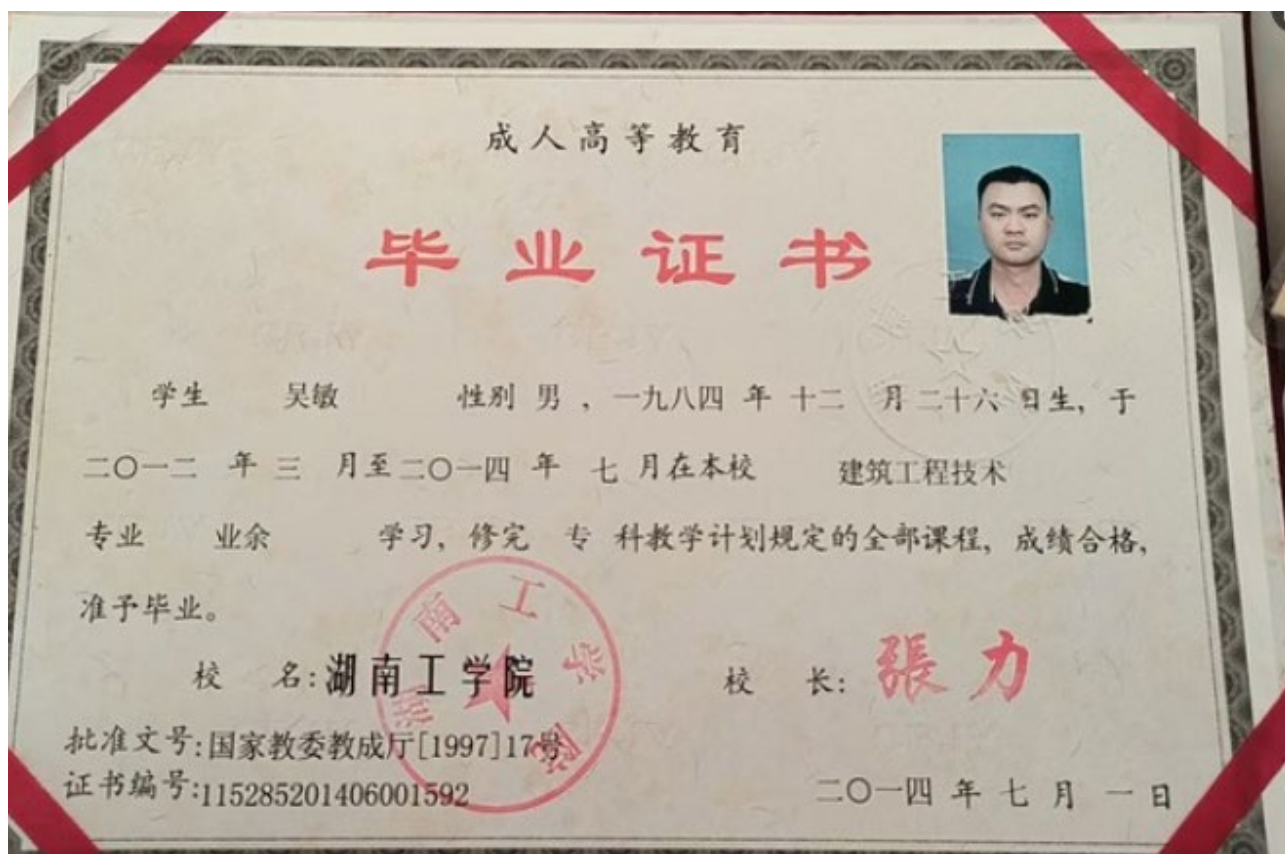 成人高等教育
毕业证书
学生 吴敏 性别 男 ，一九八四 年 十二 月 二十六 日生，于
二〇一二 年 三 月至 二〇一四 年 七 月在本校 建筑工程技术
专业 业余 学习，修完 专 科教学计划规定的全部课程，成绩合格，
准予毕业。
校 名：湖南工学院 校 长：張力
湖南工学院
批准文号：国家教委教成厅[1997]17号
证书编号：115285201406001592
二〇一四 年 七 月 一 日